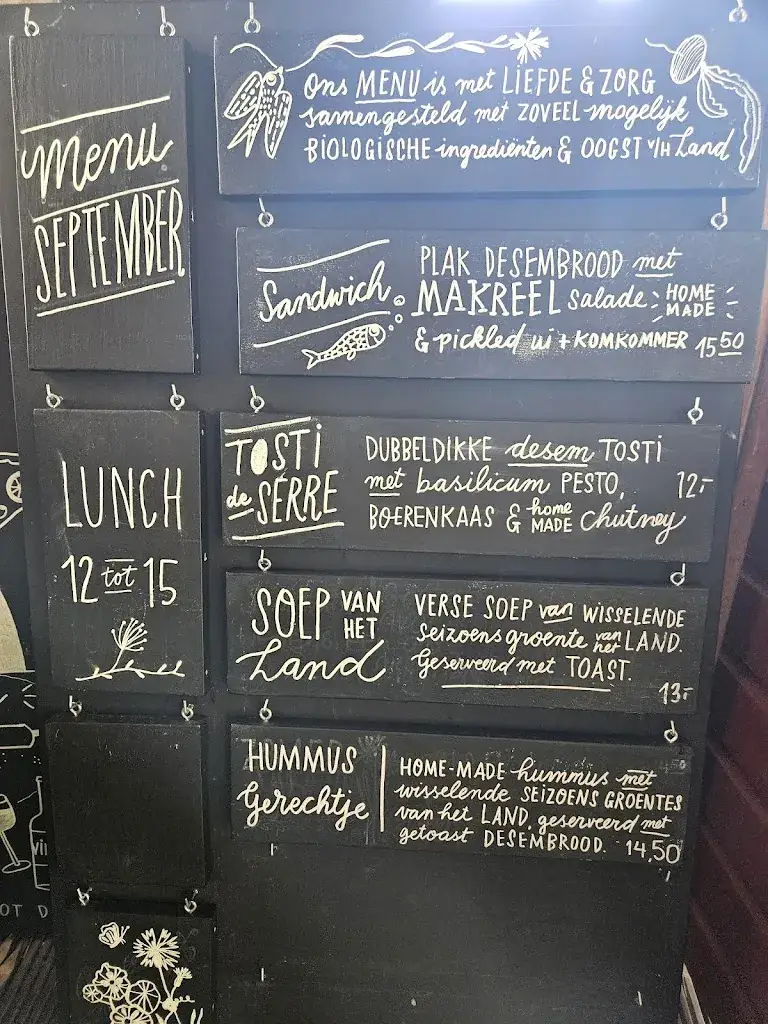 Menu
SEPTEMBER
Ons MENU is met LIEFDE & ZORG
samengesteld met ZOVEEL mogelijk
BIOLOGISCHE ingrediënten & OOGST V/H Land
Sandwich
PLAK DESEMBROOD met
MAKREEL salade HOME MADE
& pickled ui + KOMKOMMER 15 50
LUNCH
12 tot 15
TOSTI
de SERRE
DUBBELDIKKE desem TOSTI
met basilicum PESTO, 12,-
BOERENKAAS & home MADE chutney
SOEP VAN HET
Land
VERSE SOEP van WISSELENDE
seizoensgroente van het LAND.
Geserveerd met TOAST.
13,-
HUMMUS
Gerechtje
HOME-MADE hummus met
wisselende SEIZOENS GROENTES
van het LAND, geserveerd met
getoast DESEMBROOD. 14,50
OT D